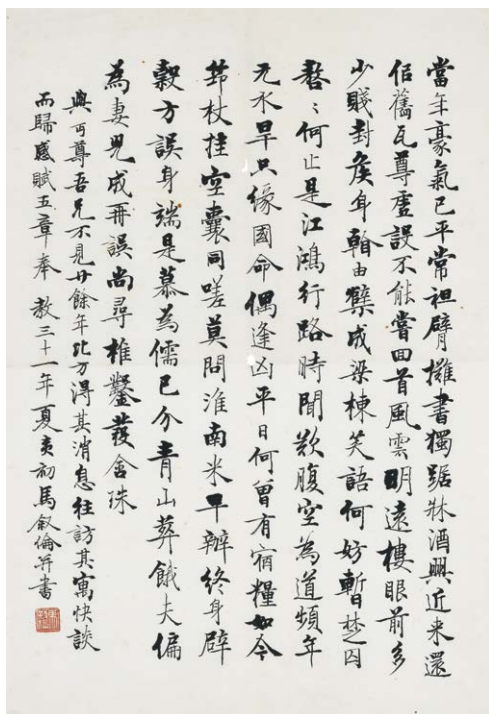 當年豪氣已平常袒臂攤書獨踞牀酒興近来還
佀舊瓦尊虛設不能嘗回首風雲明遠樓眼前多
少賤封矦身榦由櫱成梁棟笑語何妨暫楚囚
嗸〻何止是江鴻行路時聞歎腹空為道頻年
无水旱只緣國命偶逢凶平日何曾有宿糧如今
笻杖挂空囊同嗟莫問淮南米早辦終身辟
穀方誤身端是慕為儒已分青山葬餓夫偏
為妻兒成再誤尚尋椎鑿發含珠
與丏尊吾兄不見廿餘年比方得其消息往訪其寓快談
而歸感賦五章奉 教三十一年夏夷初馬叙倫并書